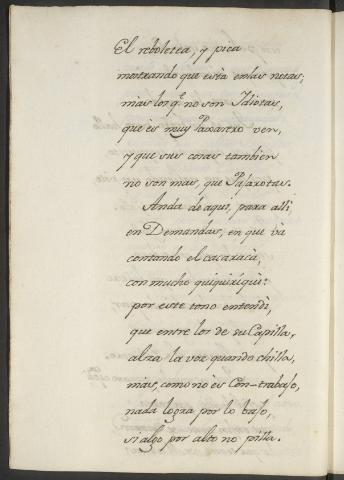 El reboletea, y pica
mostrando que està en las notas;
mas los q.e no son Idiotas,
que es muy Paxarero ven,
y que sus cosas tambien
no son mas, que Pajarotas.
Anda de aqui, para alli,
en Demandas, en que và
contando el cacaraca,
con mucho quiquiriqui:
por este tono entendi,
que entre los de su Capilla,
alza la voz quando chilla,
mas, como no es Con-trabajo,
nada logra por lo bajo,
si algo por alto no pilla.